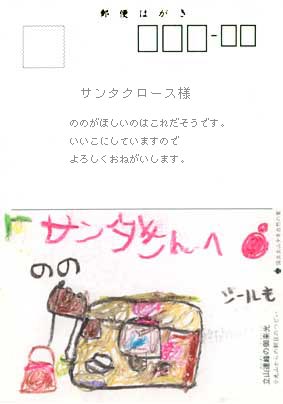 郵便はがき
サンタクロース様
ののがほしいのはこれだそうです。
いいこにしていますので
よろしくおねがいします。
サンタさんへ
のの
シールも
立山連峰の御来光